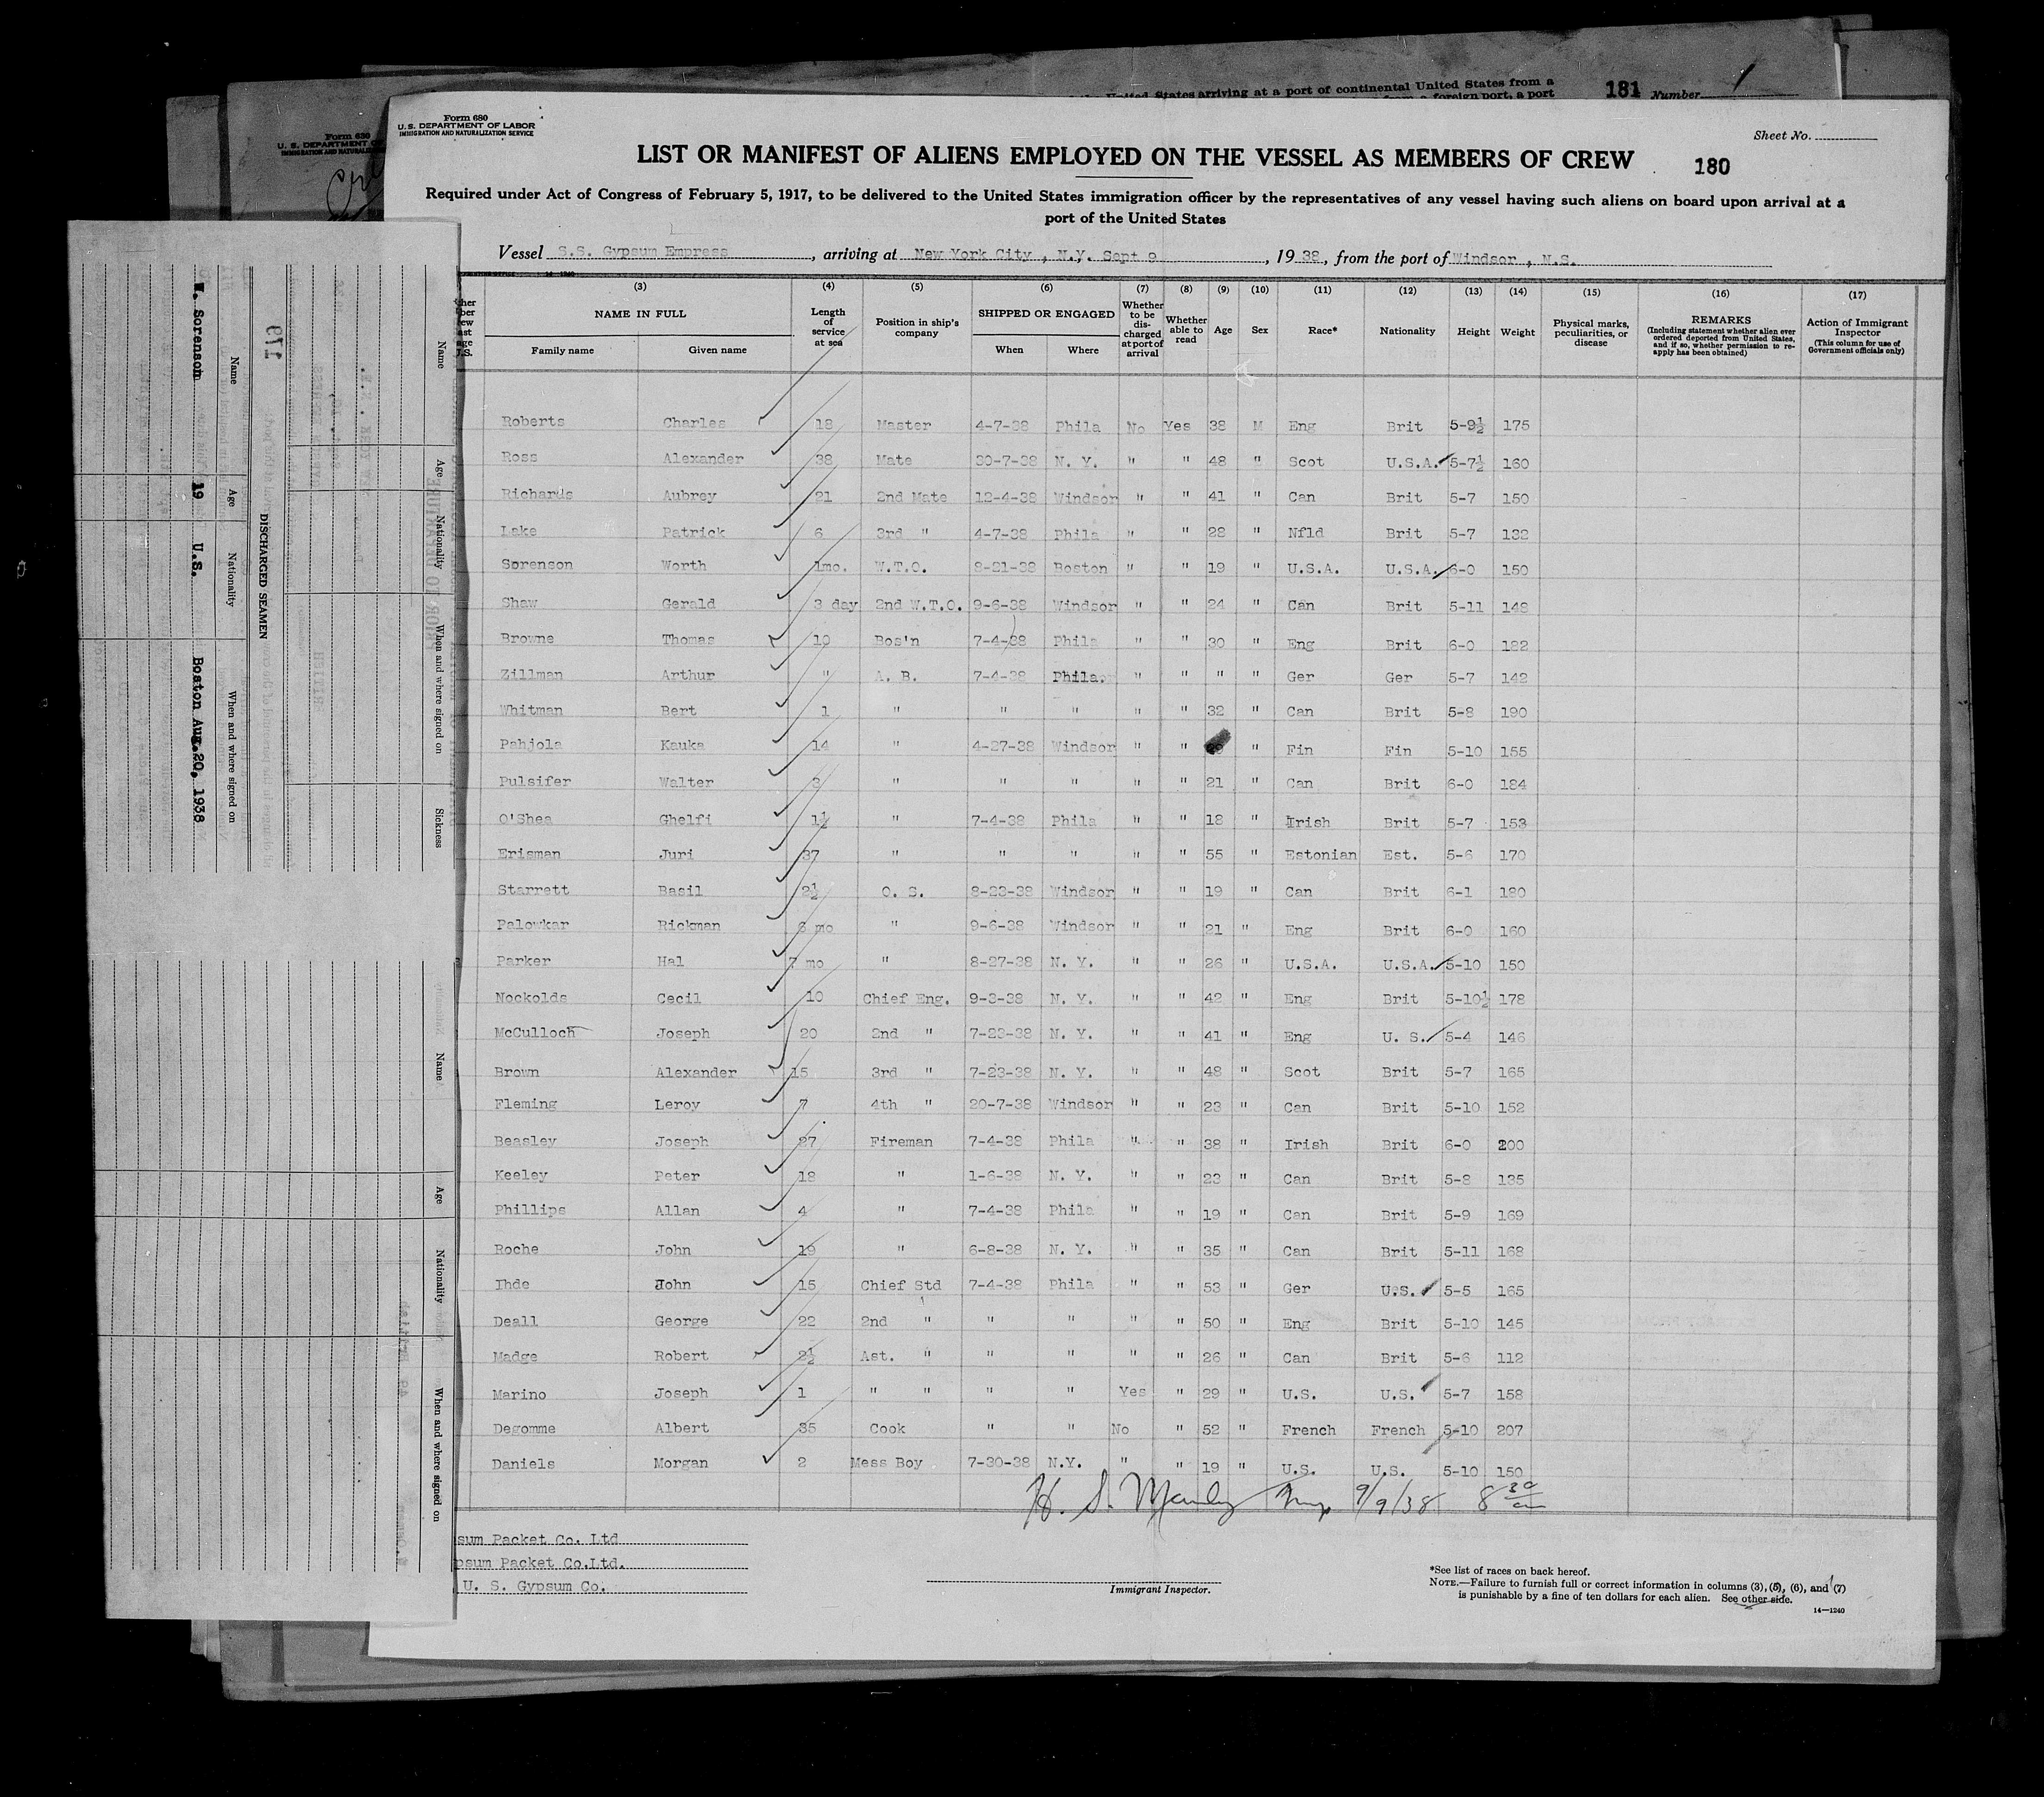 181 Number
Form 680
U. S. DEPARTMENT OF LABOR
IMMIGRATION AND NATURALIZATION SERVICE
Sheet No.
LIST OR MANIFEST OF ALIENS EMPLOYED ON THE VESSEL AS MEMBERS OF CREW
180
Required under Act of Congress of February 5, 1917, to be delivered to the United States immigration officer by the representatives of any vessel having such aliens on board upon arrival at a
port of the United States
Vessel S.S. Gypsum Empress, arriving at New York City, N.Y. Sept 9, 1938, from the port of Windsor, N.S.
(3) (4) (5) (6) (7) (8) (9) (10) (11) (12) (13) (14) (15) (16) (17)
NAME IN FULL
Family name Given name
Length of service at sea
Position in ship's company
SHIPPED OR ENGAGED
When Where
Whether to be discharged at port of arrival
Whether able to read
Age Sex Race* Nationality Height Weight
Physical marks, peculiarities, or disease
REMARKS
(Including statement whether alien ever ordered deported from United States, and if so, whether permission to reapply has been obtained)
Action of Immigrant Inspector
(This column for use of Government officials only)
Roberts Charles 18 Master 4-7-38 Phila No Yes 38 M Eng Brit 5-9½ 175
Ross Alexander 38 Mate 30-7-38 N. Y. " " 48 " Scot U.S.A. 5-7½ 160
Richards Aubrey 21 2nd Mate 12-4-38 Windsor " " 41 " Can Brit 5-7 150
Lake Patrick 6 3rd " 4-7-38 Phila " " 28 " Nfld Brit 5-7 132
Sorenson Worth 1mo. W.T.O. 8-21-38 Boston " " 19 " U.S.A. U.S.A. 6-0 150
Shaw Gerald 3 day 2nd W.T.O. 9-6-38 Windsor " " 24 " Can Brit 5-11 148
Browne Thomas 10 Bos'n 7-4-38 Phila " " 30 " Eng Brit 6-0 182
Zillman Arthur " A. B. 7-4-38 Phila. " " " " Ger Ger 5-7 142
Whitman Bert 1 " " " " " 32 " Can Brit 5-8 190
Pahjola Kauka 14 " 4-27-38 Windsor " " " Fin Fin 5-10 155
Pulsifer Walter 3 " " " " " 21 " Can Brit 6-0 184
O'Shea Ghelfi 1½ " 7-4-38 Phila " " 18 " Irish Brit 5-7 153
Erisman Juri 37 " " " " " 55 " Estonian Est. 5-6 170
Starrett Basil 2½ O. S. 8-23-38 Windsor " " 19 " Can Brit 6-1 180
Palowkar Rickman 6 mo " 9-6-38 Windsor " " 21 " Eng Brit 6-0 160
Parker Hal 7 mo " 8-27-38 N. Y. " " 26 " U.S.A. U.S.A. 5-10 150
Nockolds Cecil 10 Chief Eng. 9-3-38 N. Y. " " 42 " Eng Brit 5-10½ 178
McCulloch Joseph 20 2nd " 7-23-38 N. Y. " " 41 " Eng U. S. 5-4 146
Brown Alexander 15 3rd " 7-23-38 N. Y. " " 48 " Scot Brit 5-7 165
Fleming Leroy 7 4th " 20-7-38 Windsor " " 23 " Can Brit 5-10 152
Beasley Joseph 27 Fireman 7-4-38 Phila " " 38 " Irish Brit 6-0 200
Keeley Peter 18 " 1-6-38 N. Y. " " 23 " Can Brit 5-8 135
Phillips Allan 4 " 7-4-38 Phila " " 19 " Can Brit 5-9 169
Roche John 19 " 6-8-38 N. Y. " " 35 " Can Brit 5-11 168
Ihde John 15 Chief Std 7-4-38 Phila " " 53 " Ger U.S. 5-5 165
Deall George 22 2nd " " " " " 50 " Eng Brit 5-10 145
Madge Robert 2½ Ast. " " " " " 26 " Can Brit 5-6 112
Marino Joseph 1 " " " " Yes " 29 " U.S. U.S. 5-7 158
Degomme Albert 35 Cook " " No " 52 " French French 5-10 207
Daniels Morgan 2 Mess Boy 7-30-38 N.Y. " " 19 " U.S. U.S. 5-10 150
H. S. Manly Insp 9/9/38 8 30 am
sum Packet Co. Ltd
psum Packet Co.Ltd.
U. S. Gypsum Co.
Immigrant Inspector.
*See list of races on back hereof.
NOTE.—Failure to furnish full or correct information in columns (3), (5), (6), and (7)
is punishable by a fine of ten dollars for each alien. See other side.
14—1240
179
DISCHARGED SEAMEN
Name Age Nationality When and where signed on
W. Sorenson 19 U.S. Boston Aug.20, 1938
Name Age Nationality When and where signed on Sickness
Name Age Nationality When and where signed on